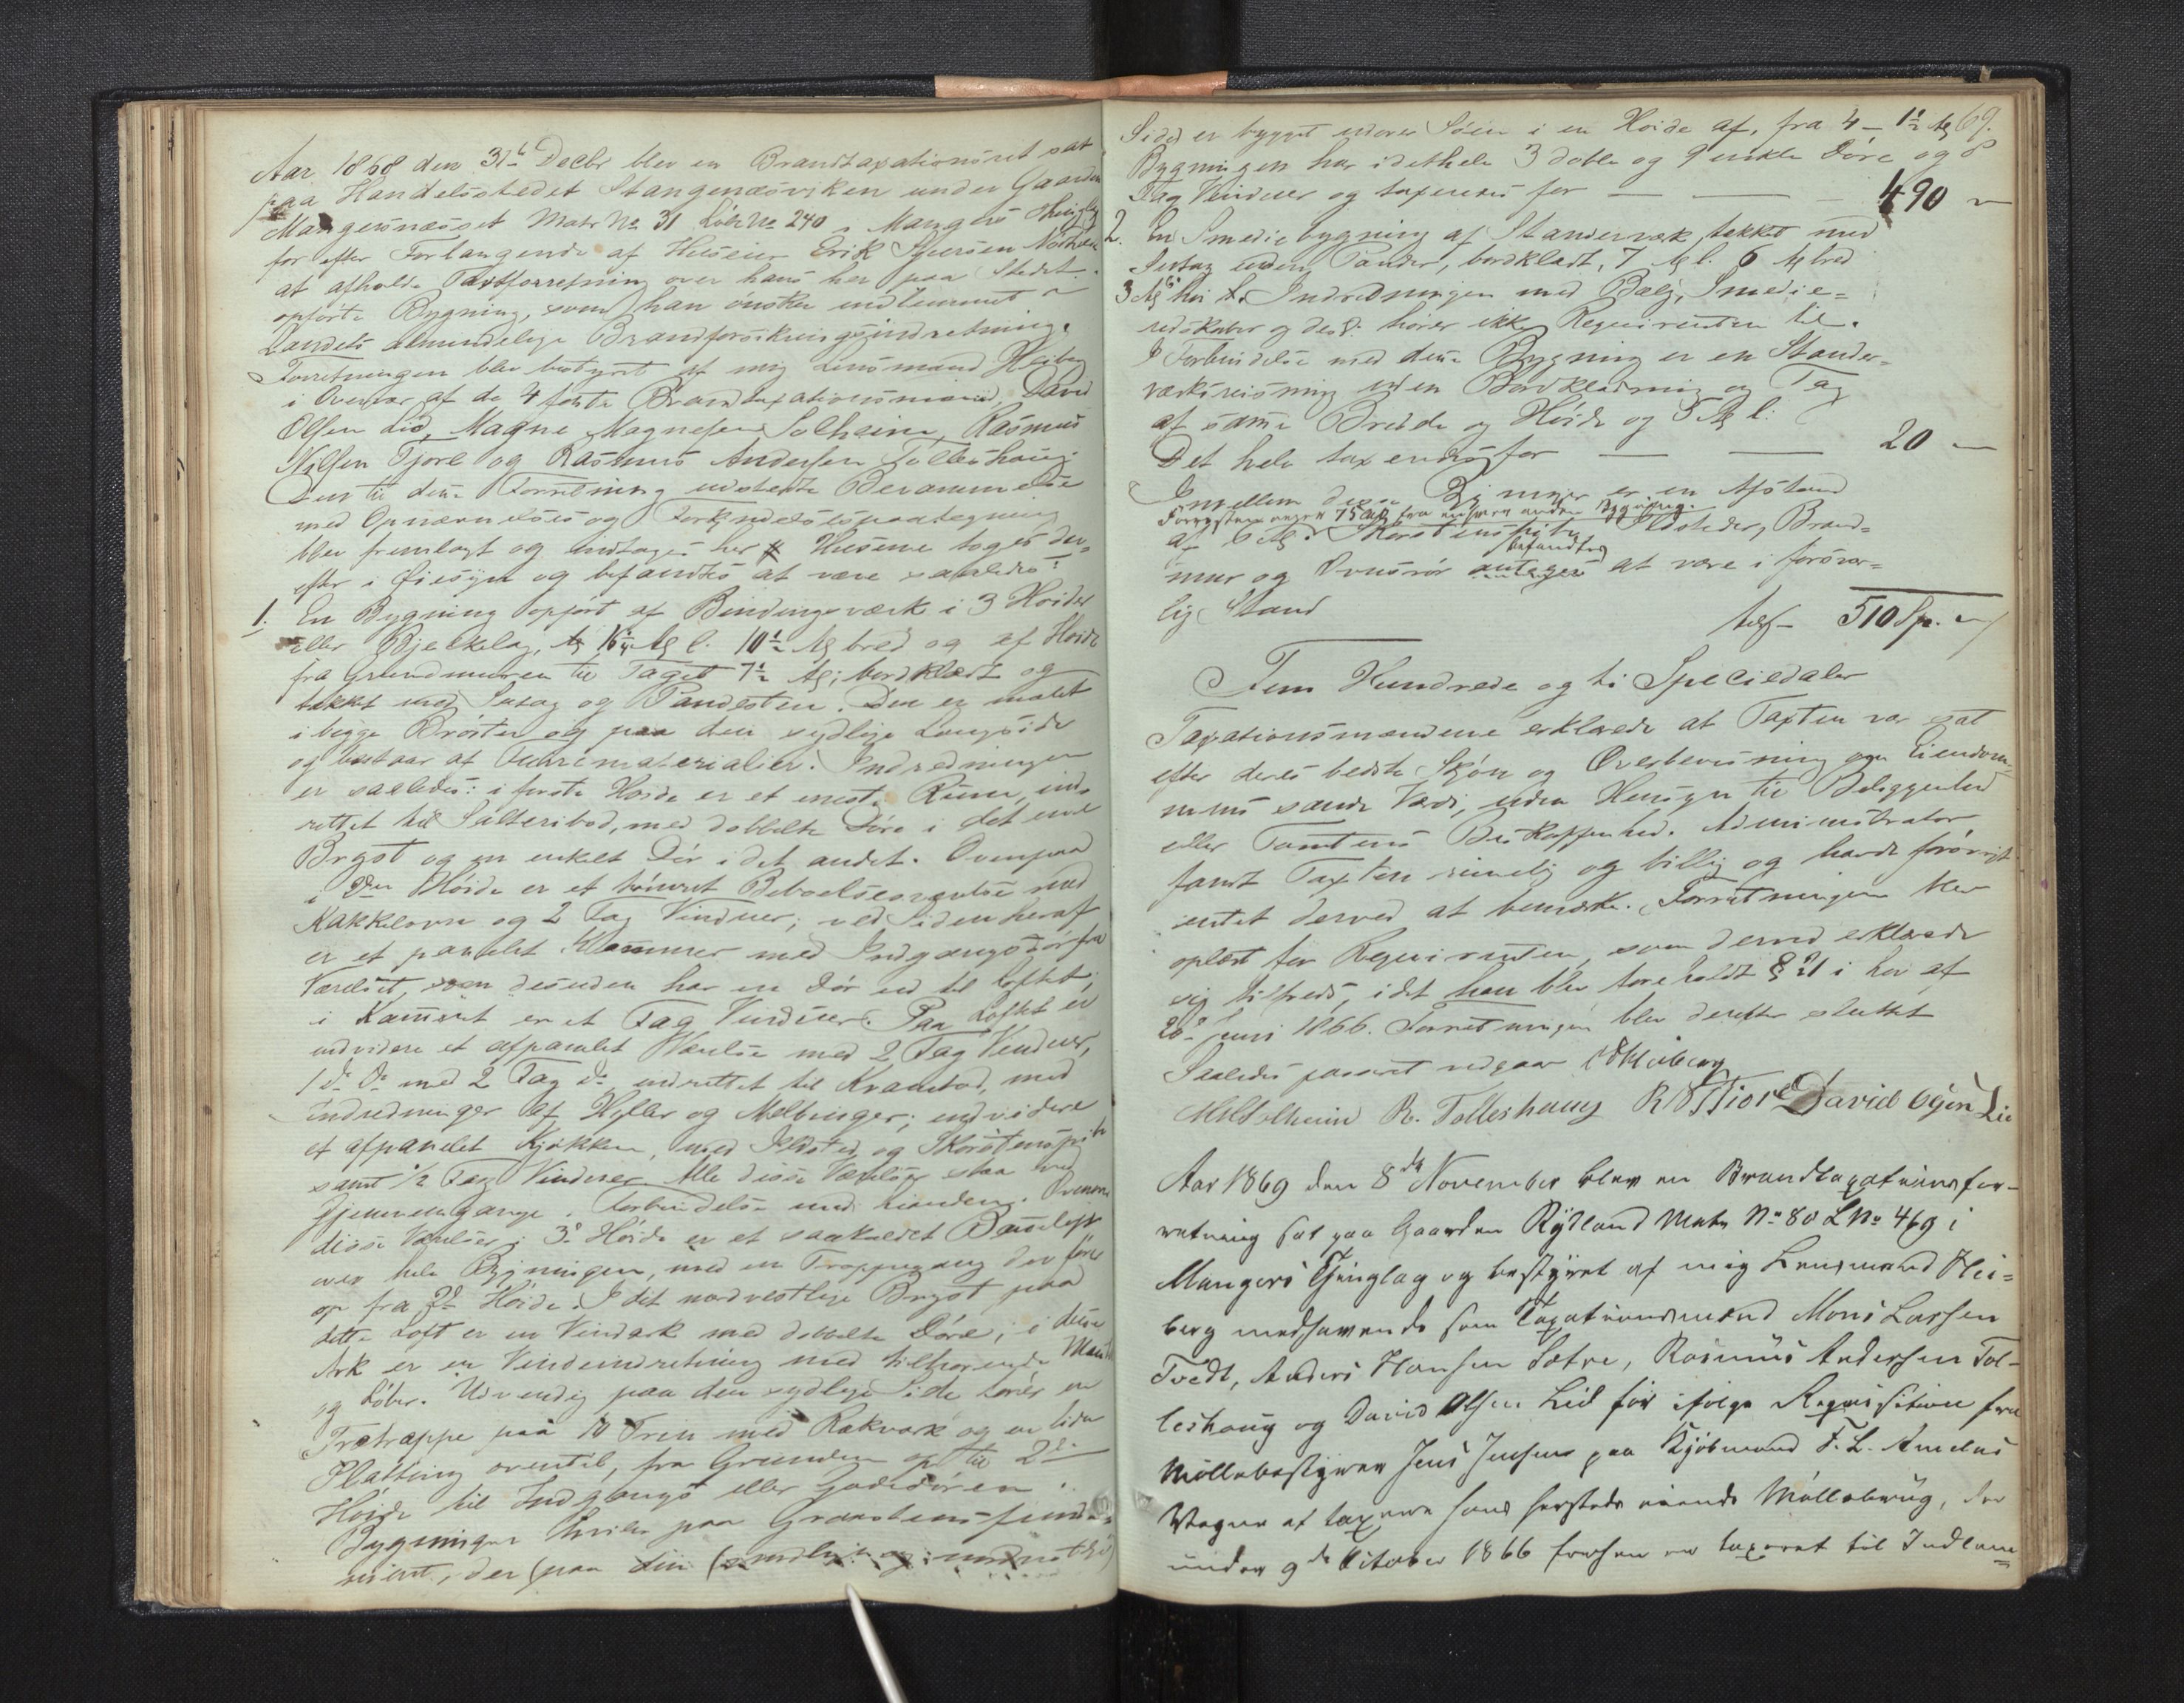 Aar 1868 den 31te Decbr blev en Brandtaxationsret sat
paa Handelsstedet Stangenæsviken under Gaarden
Mangersnæsset Matr No 31 Løbe No 240 i Mangers Thinglag
for efter Forlangende af Huseier Erik
at afholde Taxtforretning over hans her paa Stedet
opførte Bygning, som han ønsker indlemmet i
Landets almindelige Brandforsikringsindretning.
Forretningen blev bestyret af mig Lensmand Heiberg
i Overvær af de 4 faste Brandtaxationsmænd, David
Olsen Lid, Magne Magnesen Solheim, Rasmus
Nilsen Fjore og Rasmus Andersen Tolleshaug.
Den til denne Forretning udstedte Berammelse
med Opnævnelses og Forkyndelsespaategning
blev fremlagt og indtages her # Husene toges der-
efter i Øiesyn og befandtes at være saaledes:
1. En Bygning opført af Bindingsværk i 3 Høider
eller Bjelkelag, 16 1/4 Al l. 10 1/2 Al bred og af Høide
fra Grundmuren til Taget 7 1/2 Al; bordklædt og
tækket med Sutag og Pandesten. Den er malet
i begge Brøster og paa den sydlige Langside
og bestaar af Furrematerialier. Indredningen
er saaledes: i første Høide er et eneste Rum, ind-
rettet til Salteribod, med dobbelte Døre i det ene
Bryst og en enkelt Dør i det andet. Ovenpaa
i 2den Høide er et tømret Beboelsesværelse med
Kakkelovn og 2 Fag Vinduer; ved Siden heraf
er et panelet Kammer med Indgangsdør fra
Værelset, som desuden har en Dør ud til Loftet;
i Kammret er et Fag Vinduer. Paa Loftet er
endvidere et afpanelet Værelse med 2 Fag Vinduer,
1 do do med 2 Fag do, indrettet til Krambod, med
Indredninger af Hyller og Melbinger; endvidere
et afpanelet Kjøkken, med Ildsted og Skorstenspibe
samt 1/2 Fag Vinduer. Alle disse Værelser staa ved
Gjennemgange i Forbindelse med hinanden. Ovenover
disse Værelser i 3de Høide er et saakaldet
over hele Bygningen, med en Trappegang der fører
op fra 2de Høide. I det nordvestlige Bryst paa
dette Loft er en Vindark med dobbelte Døre; i denne
Ark er en Vindeindretning med tilhørende
og Løber. Udvendig paa den sydlige Side fører en
Trætrappe paa 10 Trin med Rækværk og en liden
Platting oventil, fra Grunden op til 2de
Høide til Indgangs eller Gadedøren.
Bygningen hviler paa Graastensfunda-
ment, der (paa den (sydlige og nordvestlige)
69.
Side) er bygget udover Søen i en Høide af, fra 4 – 1 1/2 Al
Bygningen har idethele 3 doble og 9 enkle Døre og 8
Fag Vinduer og taxeredes for — — — 490 "
2. En Smediebygning af Standerværk, tækket med
Sutag uden Pander, bordklædt, 7 Al l. 6 Al bred
3 Al høi. Indredningen med Bælg, Smedie-
redskaber og desl. hører ikke Requirenten til.
I Forbindelse med denne Bygning er en Stander-
værksreisning uden Bordklædning og Tag
af samme Bredde og Høide og 5 Al l.
Det hele taxeredes for — — 20 "
Imellem disse Bygninger er en Afstand
Forøvrigt 75 Al fra enhver anden Bygning.
af 6 Al. Skorstenspibe, Ildsteder, Brand-
befandtes
mur og Ovnsrør antages at være i forsvar-
lig Stand
tilsf. 510 Sp. "
Fem Hundrede og ti Speciedaler
Taxationsmændene erklærede at Taxten var sat
efter deres bedste Skjøn og Overbevisning om Eiendom-
mens sande Værdi, uden Hensyn til Beliggenhed
eller Tomtens Beskaffenhed. Administrator
fandt Taxten rimelig og billig og havde forøvrigt
intet derved at bemærke. Forretningen blev
oplæst for Requirenten, som derved erklærede
sig tilfreds, idet han blev foreholdt § 21 i Lov af
20de Juni 1866. Forretningen blev derefter sluttet
Saaledes passeret vedgaar Heiberg
M M Solheim R. Tolleshaug R N Fiore David Olsen Lie
Aar 1869 den 8de November blev en Brandtaxationsfor-
retning sat paa Gaarden Rydland Matr No 80 L No 469 i
Mangers Thinglag og bestyret af mig Lensmand Hei-
berg medhavende som Taxationsmænd Mons Larsen
Tvedt, Anders Hansen Sætre, Rasmus Andersen Tol-
leshaug og David Olsen Lid for ifølge Reqvisition fra
Møllebestyrer Jens Jensen paa Kjøbmand F. L. Amelns
Vegne at taxere hans hersteds eiende Møllebrug, der
under 9de Oktober 1866 forhen er taxeret til Indlem-